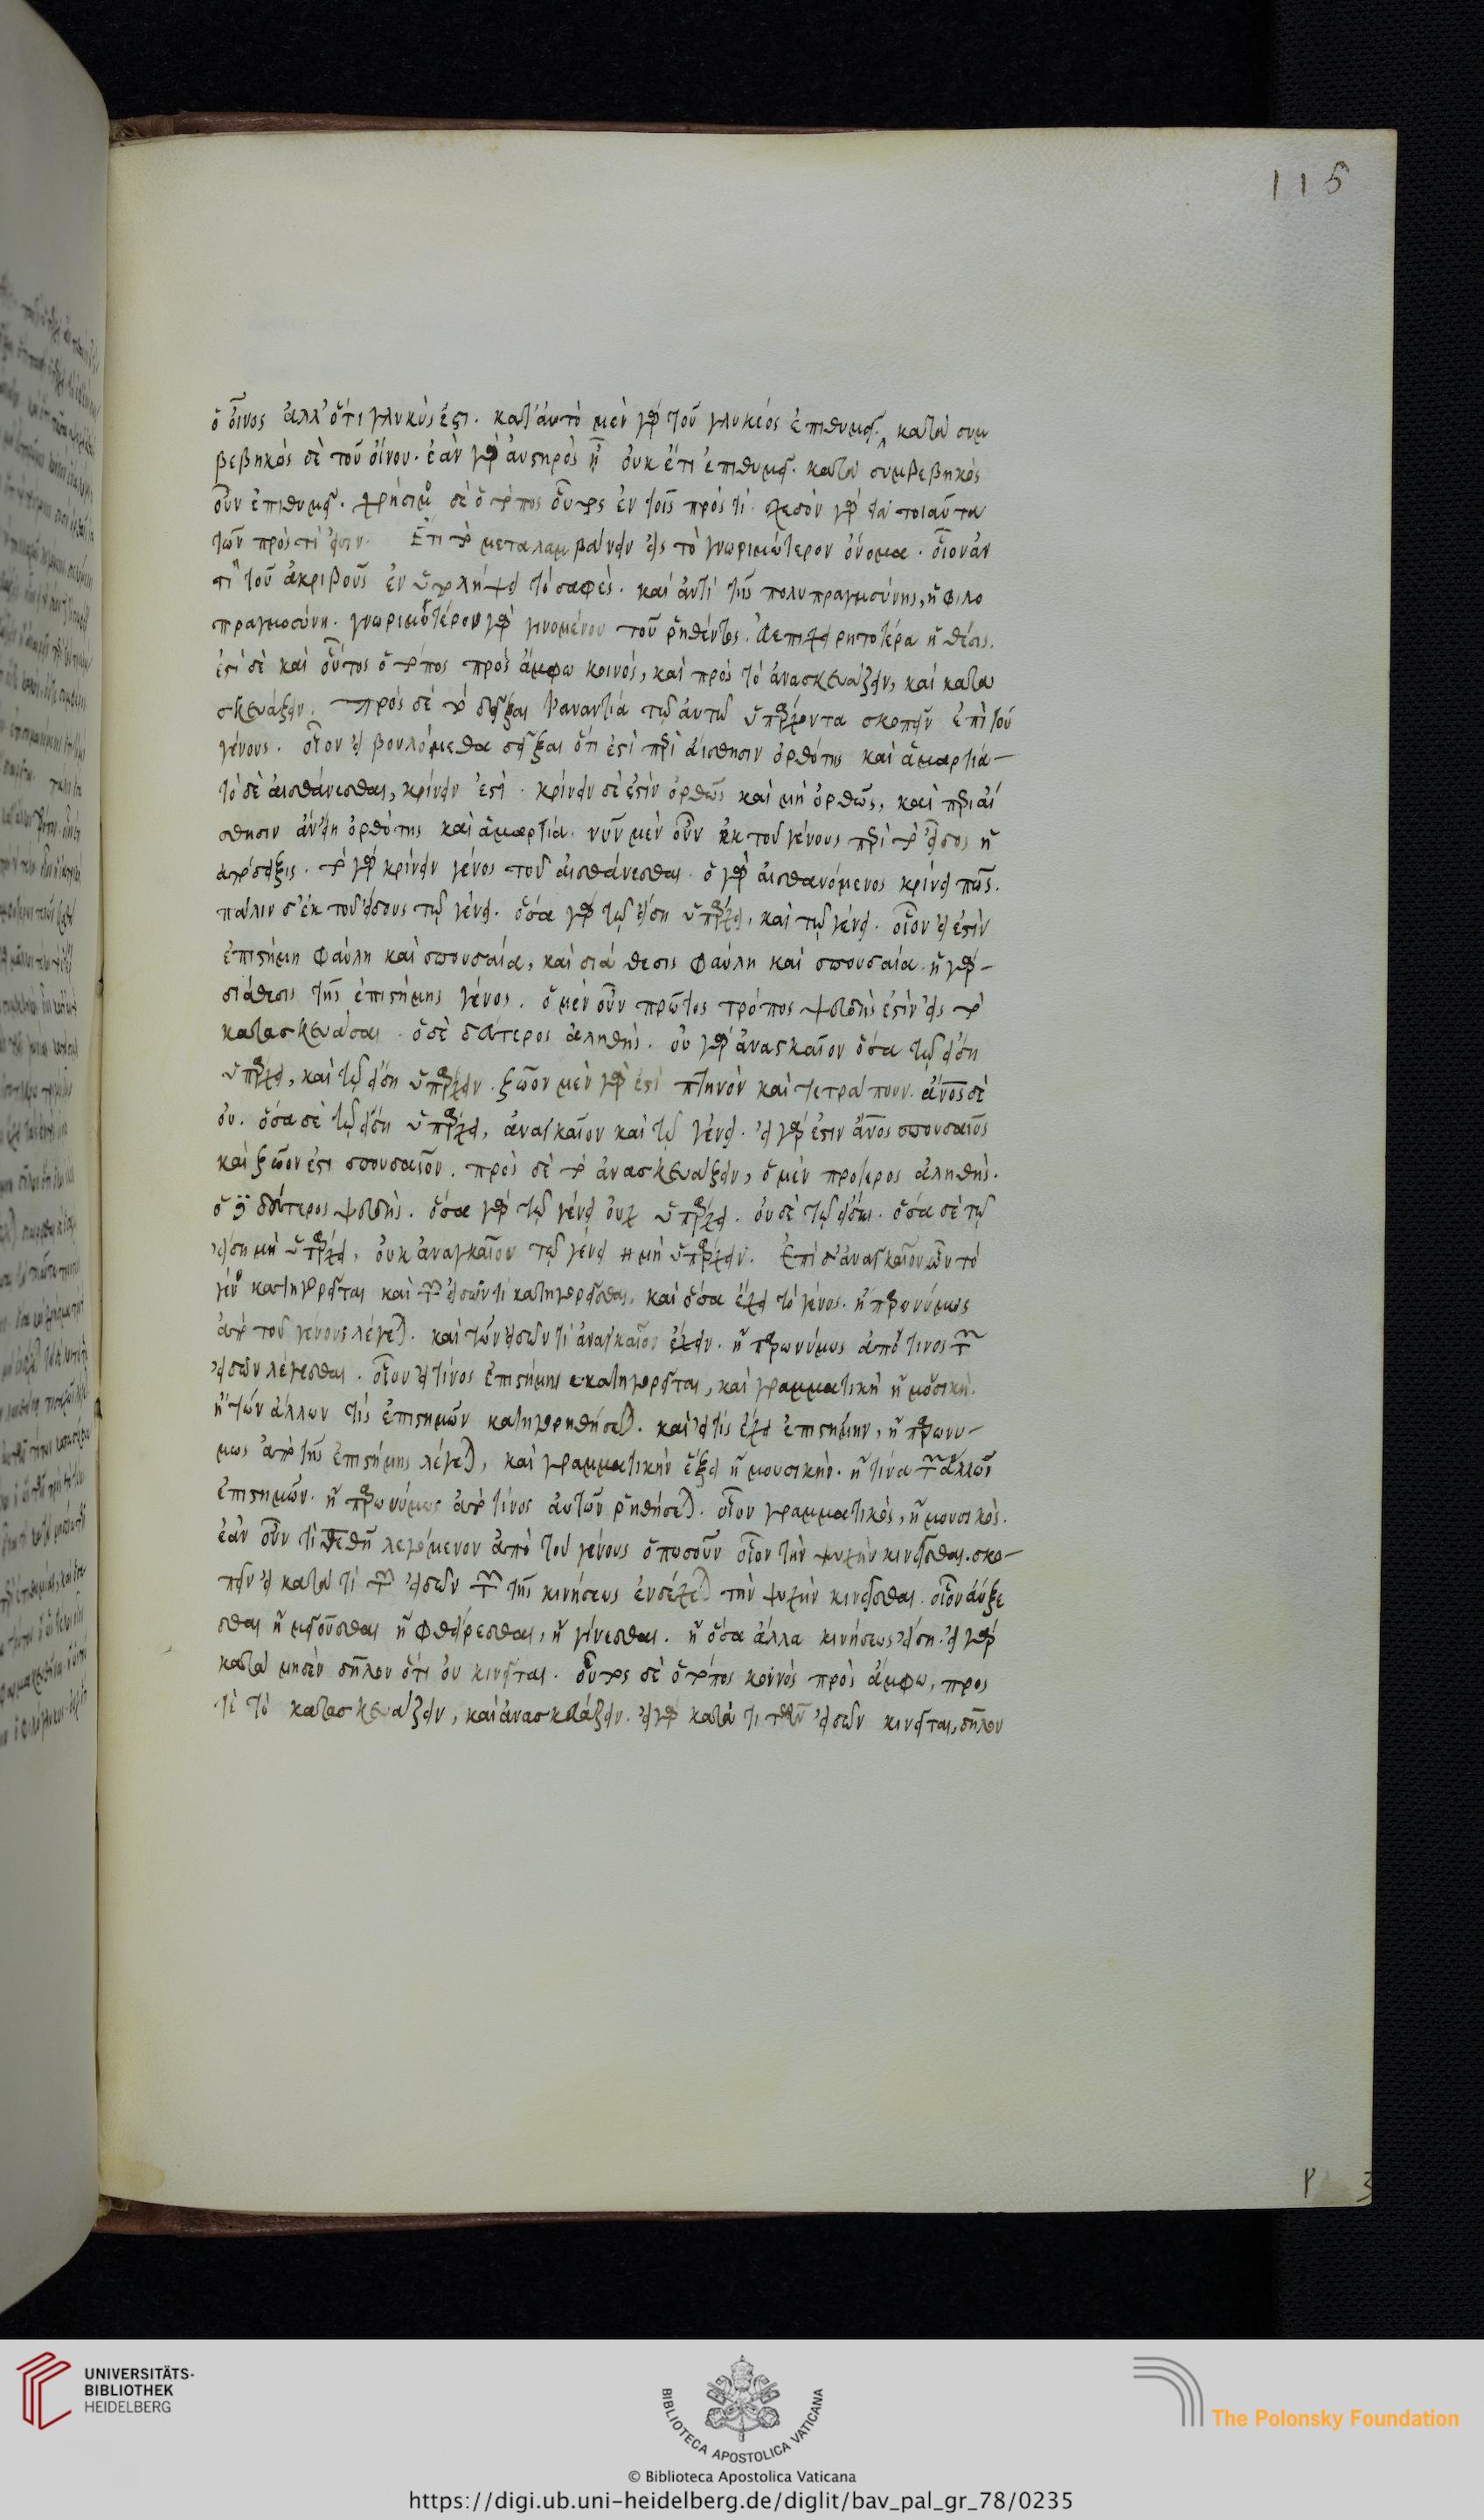 115
ὁ οἶνος ἀλλ' ὅτι γλυκύς ἐστι. καθ' αὑτὸ μὲν γὰρ τοῦ γλυκέος ἐπιθυμεῖ. κατὰ συμ
βεβηκὸς δὲ τοῦ οἴνου. ἐὰν γὰρ αὐστηρὸς ᾖ οὐκ ἔτι ἐπιθυμεῖ. κατὰ συμβεβηκὸς
οὖν ἐπιθυμεῖ. χρήσιμος δὲ ὁ τρόπος οὗτος ἐν τοῖς πρός τι. σχεδὸν γὰρ τὰ τοιαῦτα
τῶν πρός τι εἰσιν. Ἔτι τὸ μεταλαμβάνειν εἰς τὸ γνωριμώτερον ὄνομα. οἷον ἀν
τὶ τοῦ ἀκριβοῦς ἐν ὑπολήψει τὸ σαφές. καὶ ἀντὶ τῆς πολυπραγμοσύνης, ἡ φιλο
πραγμοσύνη. γνωριμωτέρου γὰρ γινομένου τοῦ ῥηθέντος. εὐεπιχειρητοτέρα ἡ θέσις.
ἔστι δὲ καὶ οὗτος ὁ τρόπος πρὸς ἄμφω κοινός, καὶ πρὸς τὸ ἀνασκευάζειν, καὶ κατα
σκευάζειν. Πρὸς δὲ τὸ δεῖξαι τἀναντία τῷ αὐτῷ ὑπάρχοντα σκοπεῖν ἐπὶ τοῦ
γένους. οἷον εἰ βουλόμεθα δεῖξαι ὅτι ἐστὶ περὶ αἴσθησιν ὀρθότης καὶ ἁμαρτία
τὸ δὲ αἰσθάνεσθαι, κρίνειν ἐστί. κρίνειν δὲ ἐστὶν ὀρθῶς καὶ μὴ ὀρθῶς, καὶ περὶ αἴ
σθησιν ἂν εἴη ὀρθότης καὶ ἁμαρτία. νῦν μὲν οὖν ἐκ τοῦ γένους περὶ τὸ εἶδος ἡ
ἀπόδειξις. τὸ γὰρ κρίνειν γένος τοῦ αἰσθάνεσθαι. ὁ γὰρ αἰσθανόμενος κρίνει πῶς.
πάλιν δ' ἐκ τοῦ εἴδους τῷ γένει. ὅσα γὰρ τῷ εἴδει ὑπάρχει, καὶ τῷ γένει. οἷον εἰ ἐστὶν
ἐπιστήμη φαύλη καὶ σπουδαία, καὶ διάθεσις φαύλη καὶ σπουδαία. ἡ γὰρ
διάθεσις τῆς ἐπιστήμης γένος. ὁ μὲν οὖν πρῶτος τρόπος ψευδής ἐστὶν εἰς τὸ
κατασκευάσαι. ὁ δὲ δεύτερος ἀληθής. οὐ γὰρ ἀναγκαῖον ὅσα τῷ γένει
ὑπάρχει, καὶ τῷ εἴδει ὑπάρχειν. ζῶον μὲν γὰρ ἐστὶ πτηνὸν καὶ τετράπουν. ἄνθρωπος δὲ
οὐ. ὅσα δὲ τῷ εἴδει ὑπάρχει, ἀναγκαῖον καὶ τῷ γένει. εἰ γάρ ἐστιν ἄνθρωπος σπουδαῖος
καὶ ζῶον ἐστὶ σπουδαῖον. πρὸς δὲ τὸ ἀνασκευάζειν, ὁ μὲν πρότερος ἀληθής.
ὁ δὲ δεύτερος ψευδής. ὅσα γὰρ τῷ γένει οὐχ ὑπάρχει. οὐδὲ τῷ εἴδει. ὅσα δὲ τῷ
εἴδει μὴ ὑπάρχει, οὐκ ἀναγκαῖον τῷ γένει μὴ ὑπάρχειν. Ἐπεὶ δ' ἀναγκαῖον ὧν τὸ
γένος κατηγορεῖται καὶ τῶν εἰδῶν τι κατηγορεῖσθαι. καὶ ὅσα ἔχει τὸ γένος. ἢ παρωνύμως
ἀπὸ τοῦ γένους λέγεται. καὶ τῶν εἰδῶν τι ἀναγκαῖον ἔχειν. ἢ παρωνύμως ἀπό τινος τῶν
εἰδῶν λέγεσθαι. οἷον εἰ τίνος ἐπιστήμη κατηγορεῖται, καὶ γραμματικὴ ἢ μουσικὴ.
ἢ τῶν ἄλλων τίς ἐπιστημῶν κατηγορηθήσεται. καὶ εἴ τις ἔχει ἐπιστήμην, ἢ παρωνύ
μως ἀπὸ τῆς ἐπιστήμης λέγεται, καὶ γραμματικὴν ἕξει ἢ μουσικὴν. ἤ τινα τῶν ἄλλων
ἐπιστημῶν. ἢ παρωνύμως ἀπό τινος αὐτῶν ῥηθήσεται. οἷον γραμματικὸς, ἢ μουσικός.
ἐὰν οὖν τι τεθῇ λεγόμενον ἀπὸ τοῦ γένους ὁπωσοῦν οἷον τὴν ψυχὴν κινεῖσθαι. σκο
πεῖν εἰ κατά τι τῶν εἰδῶν τῶν τῆς κινήσεως ἐνδέχεται τὴν ψυχὴν κινεῖσθαι. οἷον αὔξε
σθαι ἢ μειοῦσθαι ἢ φθείρεσθαι, ἢ γίνεσθαι. ἢ ὅσα ἄλλα κινήσεως εἴδη. εἰ γὰρ
κατὰ μηδὲν δῆλον ὅτι οὐ κινεῖται. οὗτος δὲ ὁ τρόπος κοινὸς πρὸς ἄμφω, πρός
τε τὸ κατασκευάζειν, καὶ ἀνασκευάζειν. εἰ γὰρ κατά τι τῶν εἰδῶν κινεῖται, δῆλον
UNIVERSITÄTS-
BIBLIOTHEK
HEIDELBERG
BIBLIOTECA APOSTOLICA VATICANA
The Polonsky Foundation
© Biblioteca Apostolica Vaticana
https://digi.ub.uni-heidelberg.de/diglit/bav_pal_gr_78/0235